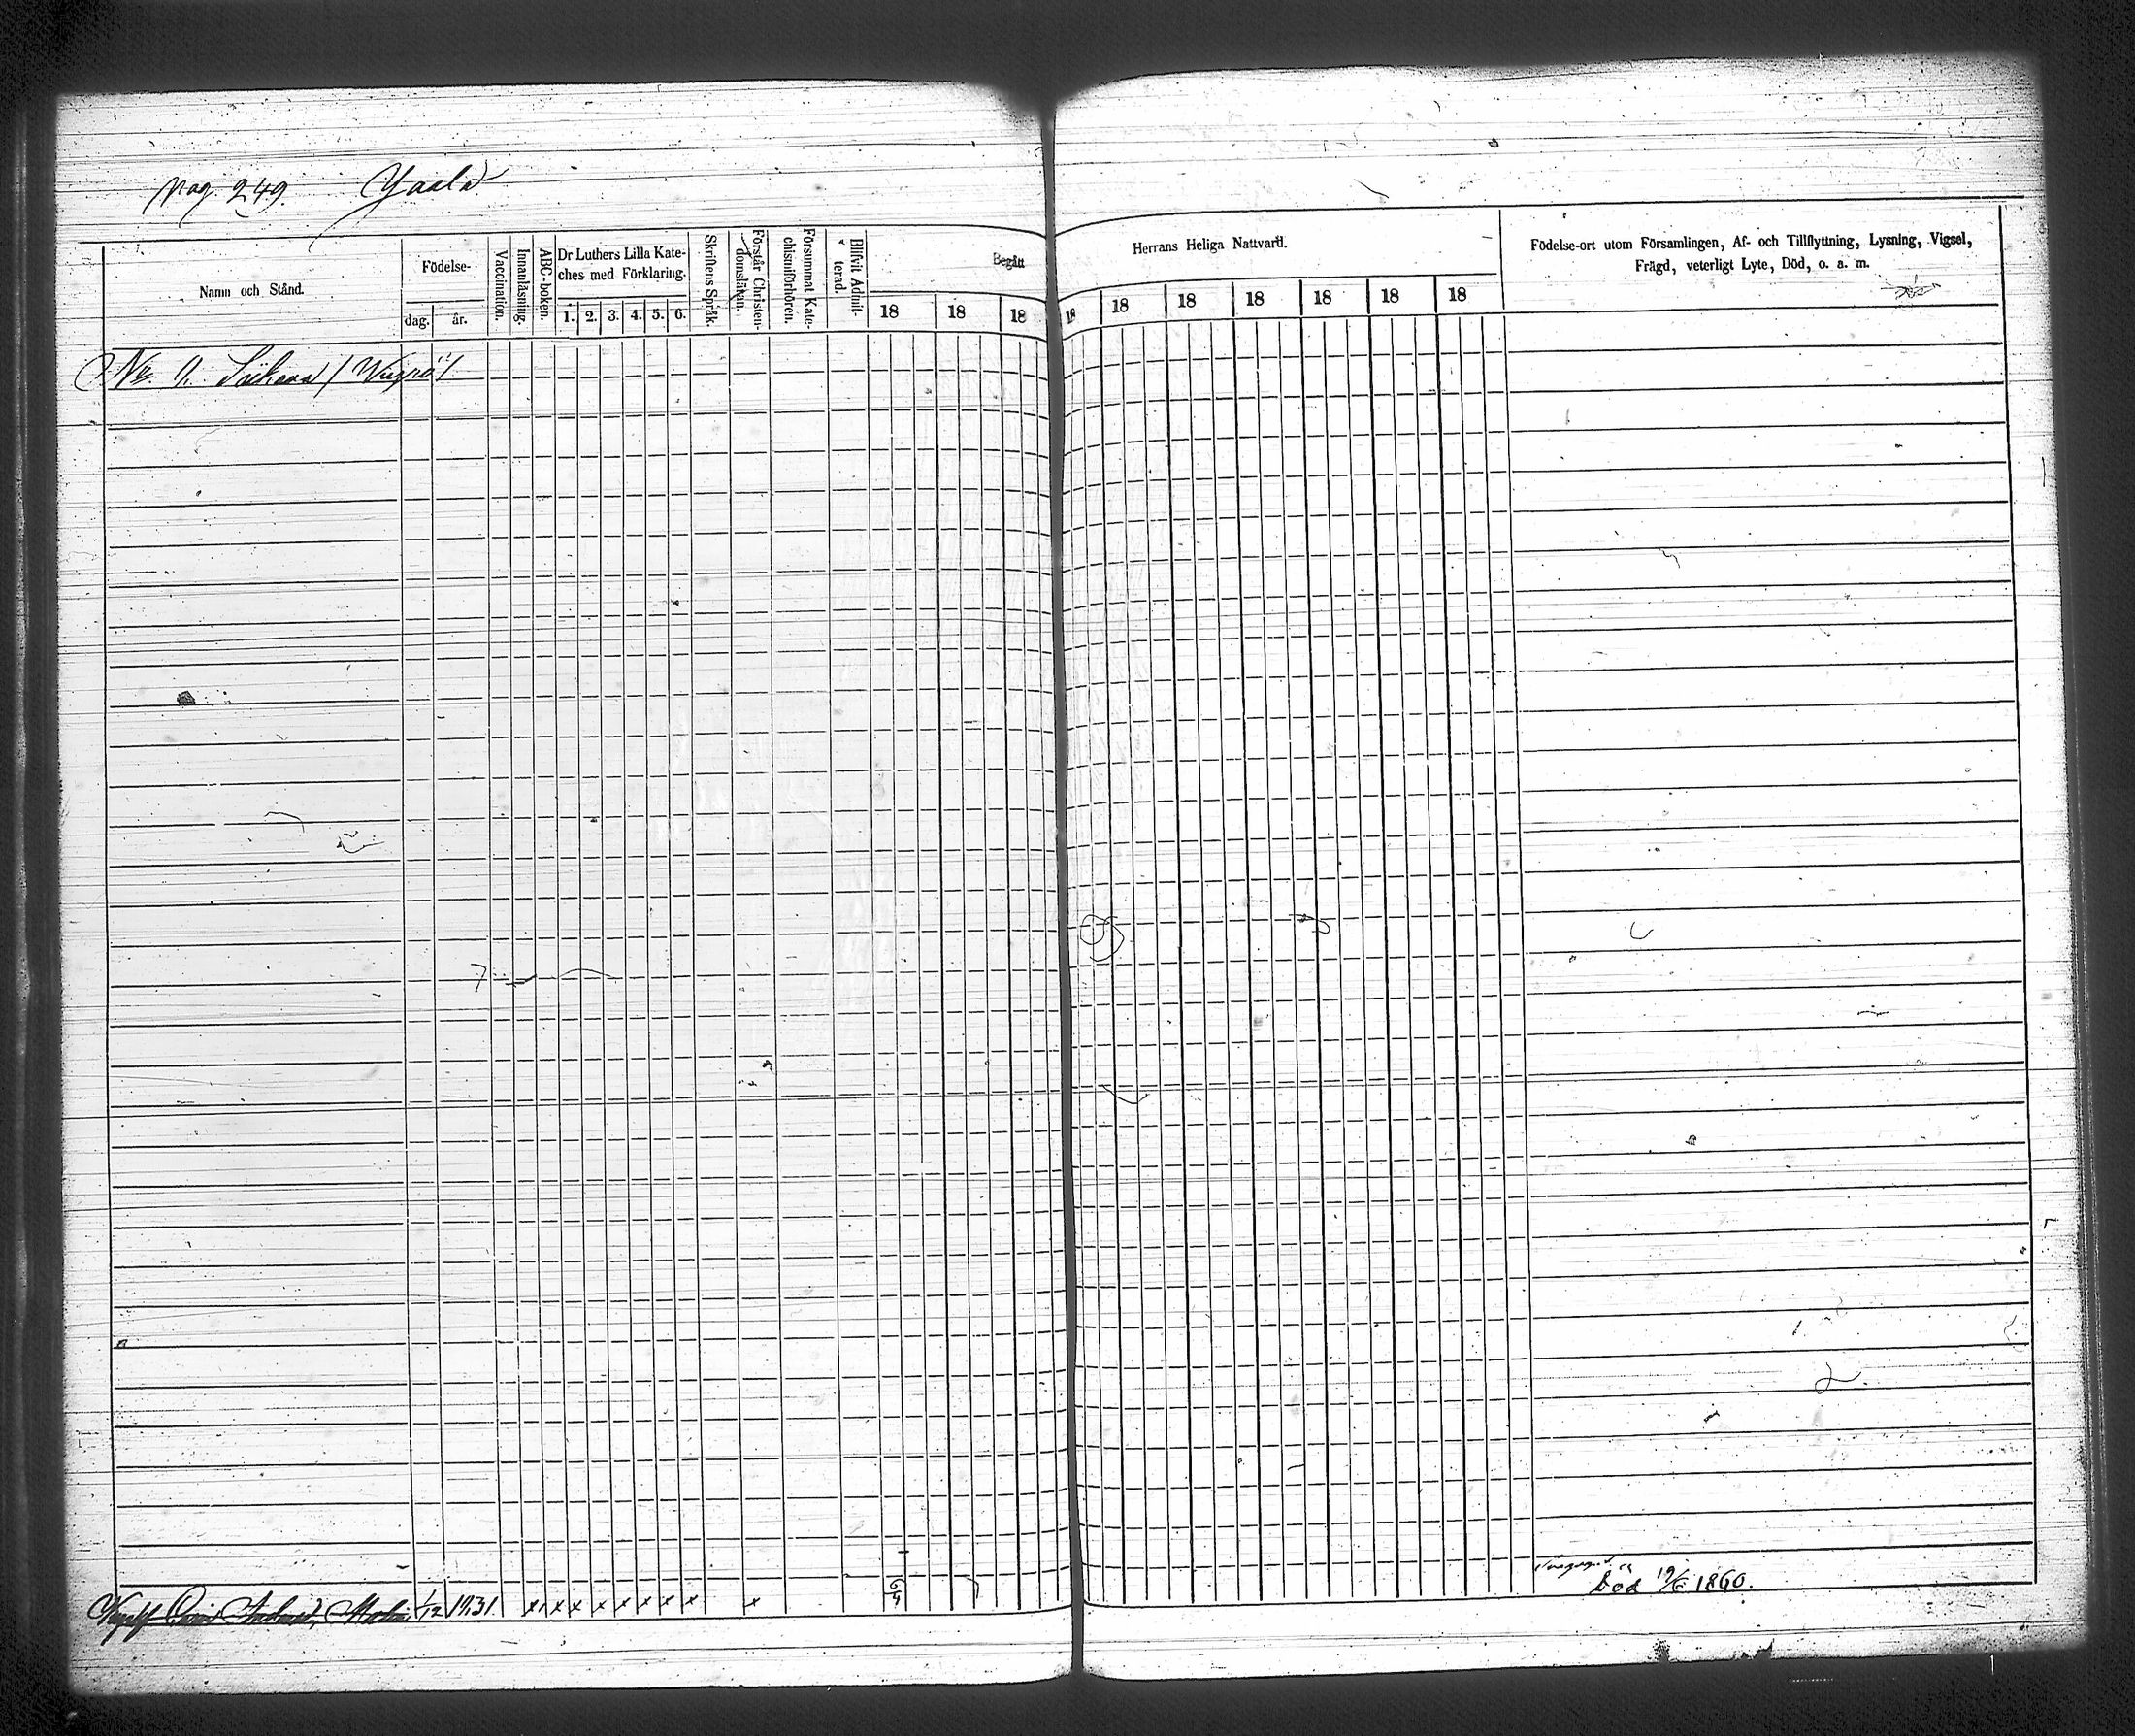 pag. 249. Yaala
Namn och Stånd.
Födelse-
dag.
år.
Vaccination.
Innanläsning.
ABC-boken.
Dr Luthers Lilla Kate-
ches med Förklaring.
1. 2. 3. 4. 5. 6.
Skriftens Språk.
Förstår Christen-
domsläran.
Försummat Kate-
chismiförhören.
Blifvit Admit-
terad.
Begått
18 18 18
Herrans Heliga Nattvard.
18 18 18 18 18 18 18
Födelse-ort utom Församlingen, Af- och Tillflyttning, Lysning, Vigsel,
Frägd, veterligt Lyte, Död, o. a. m.
1/12 1831. x x x x x x x x x
död 1860.